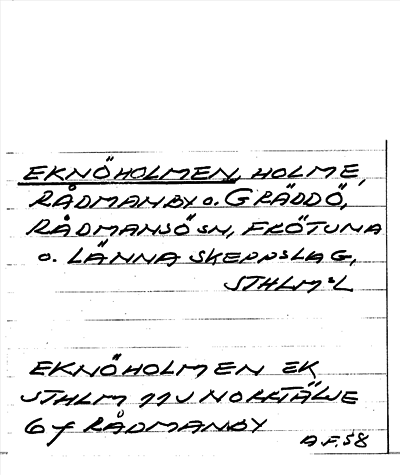 EKNÖHOLMEN, HOLME,
RÅDMANBY o. GRÄDDÖ,
RÅDMANSÖ SN, FRÖTUNA
o. LÄNNA SKEPPSLAG,
STHLMS L
EKNÖHOLMEN EK
STHLM 11 V NORRTÄLJE
6 f RÅDMANBY
A.F. 58